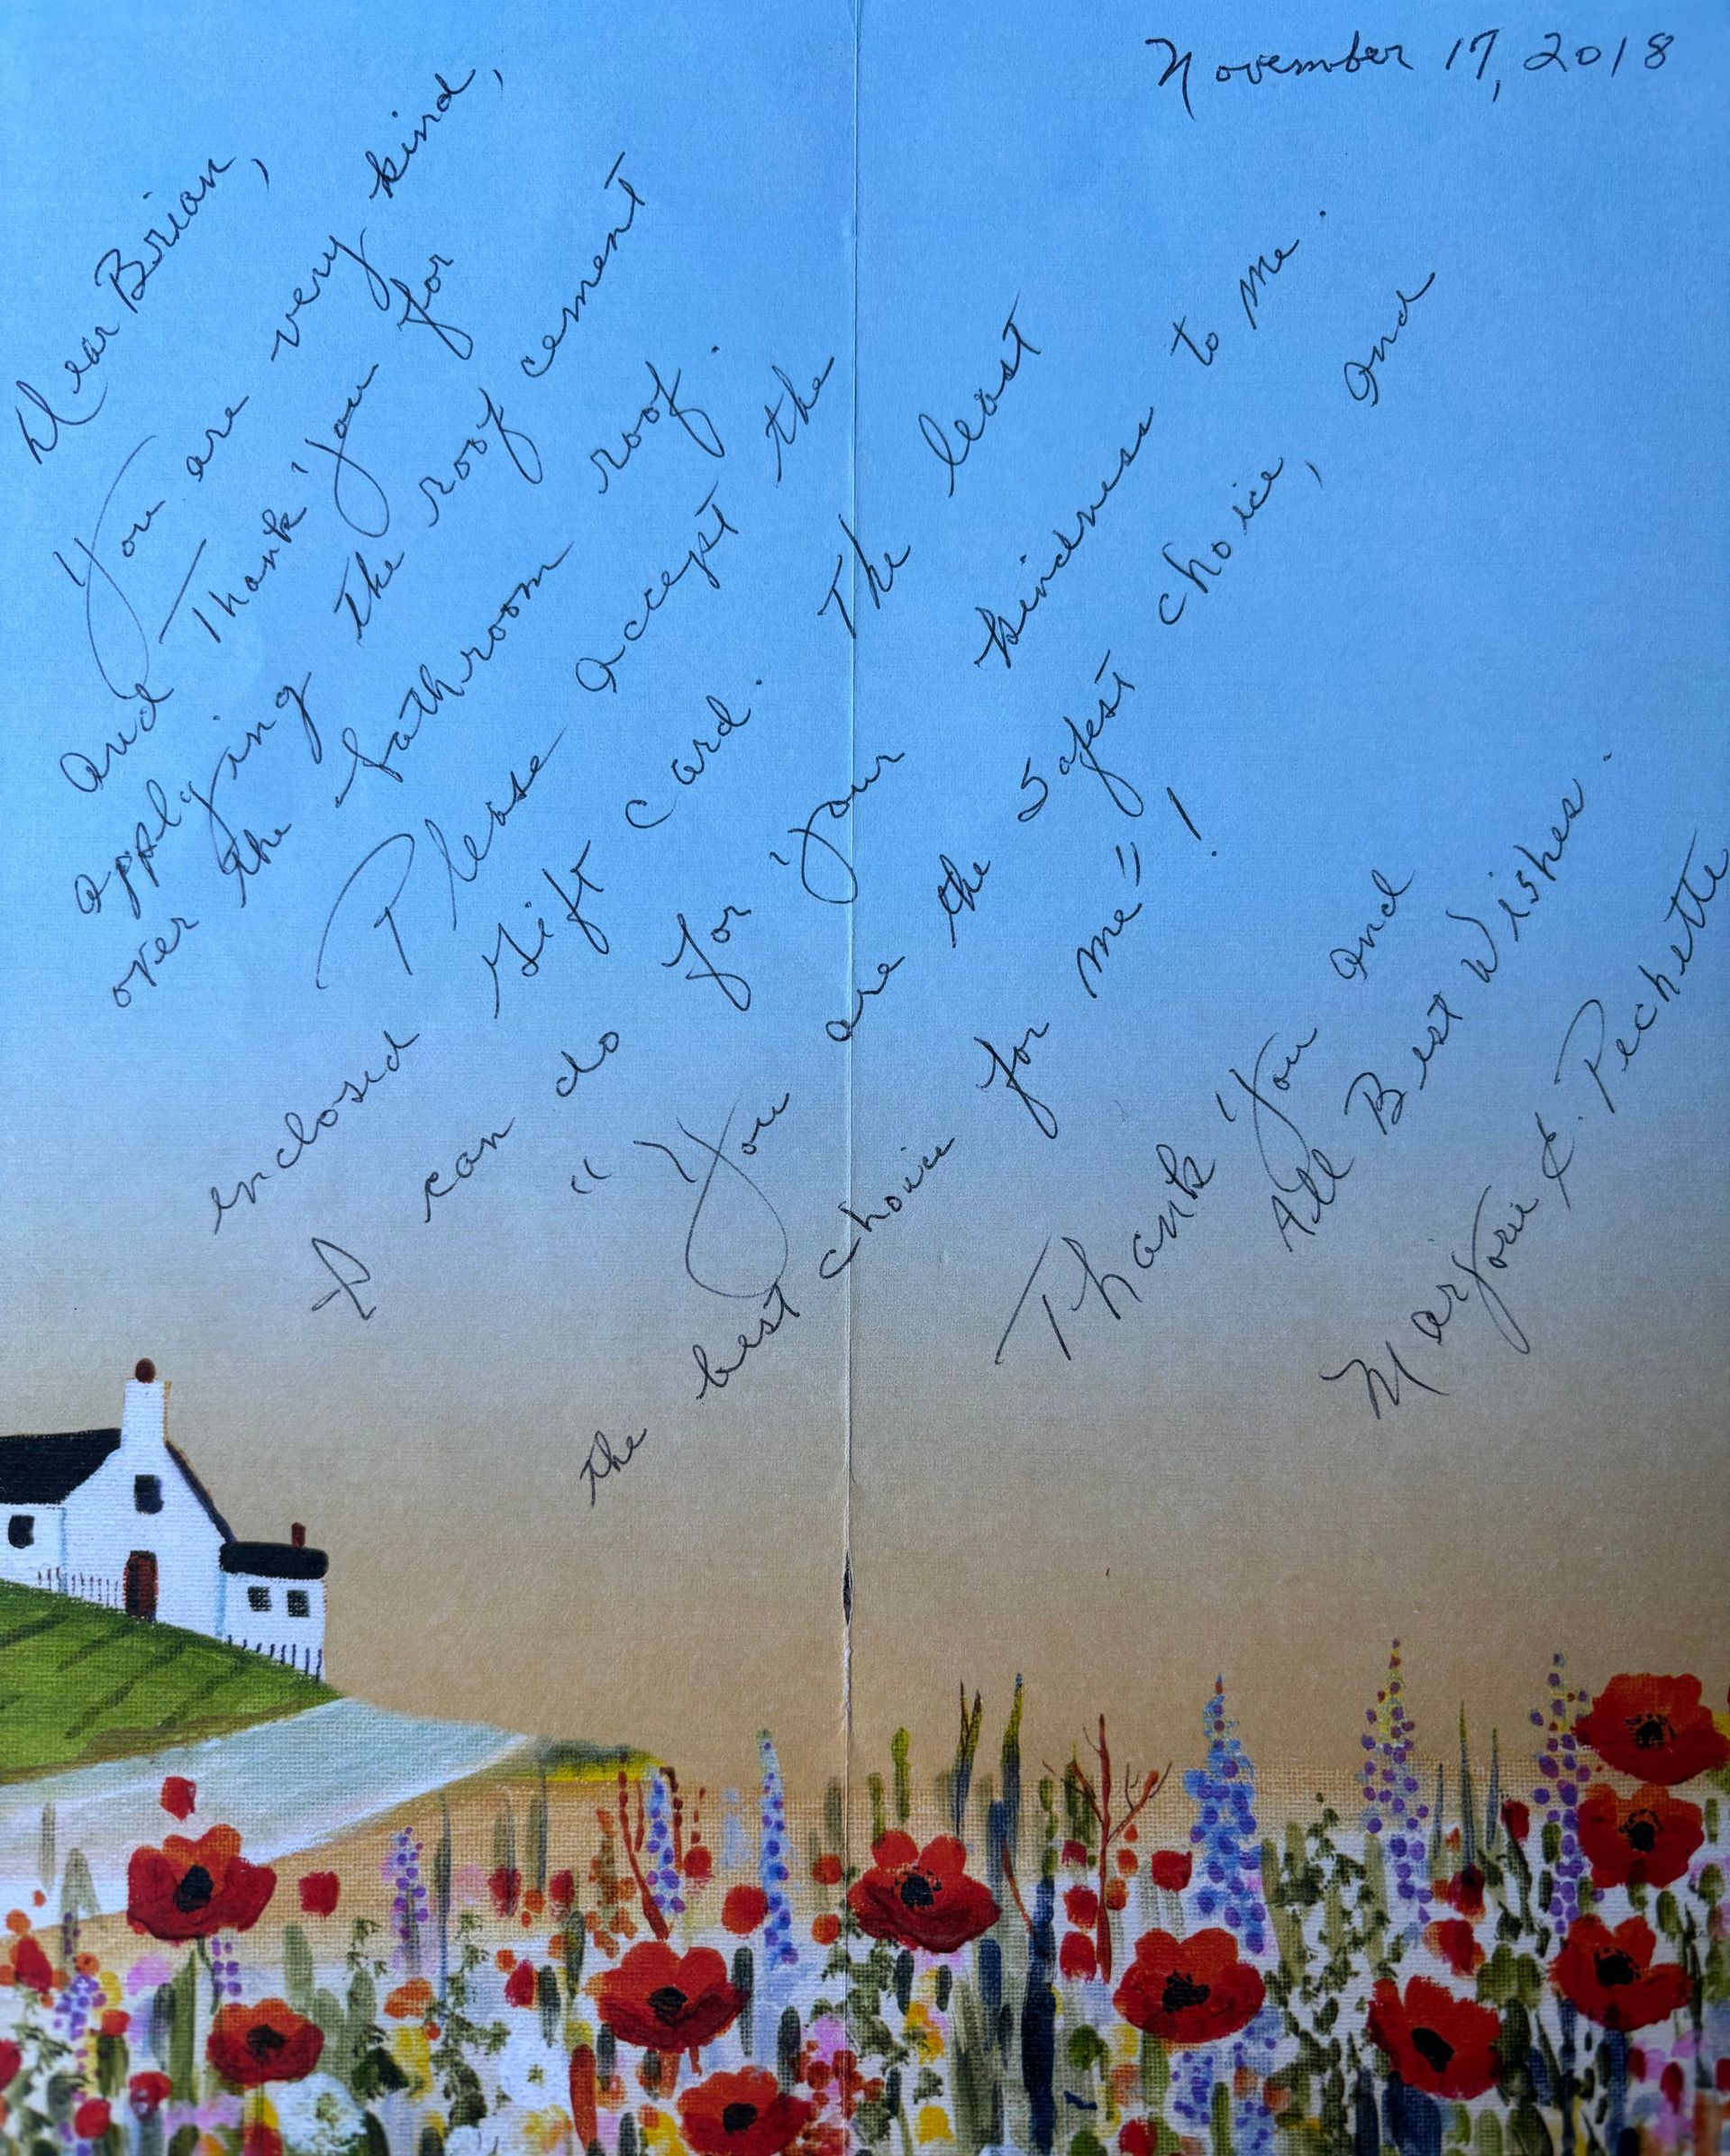 November 17, 2018
Dear Brian,
You are very kind,
and Thank You for
applying the roof cement
over the bathroom roof.
Please accept the
enclosed gift card. The least
I can do for your kindness to me.
"You are the safest choice, and
the best choice for me"!
Thank You and
All Best Wishes.
Marjorie E. Pechette